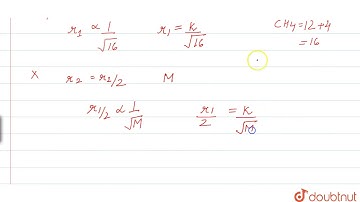 r₁ ∝ 1/√16   r₁ = K/√16   CH4 = 12+4
= 16
X   r₂ = r₁/2   M
r₁/₂ ∝ 1/√M   r₁/2 = K/√M
doubtnut